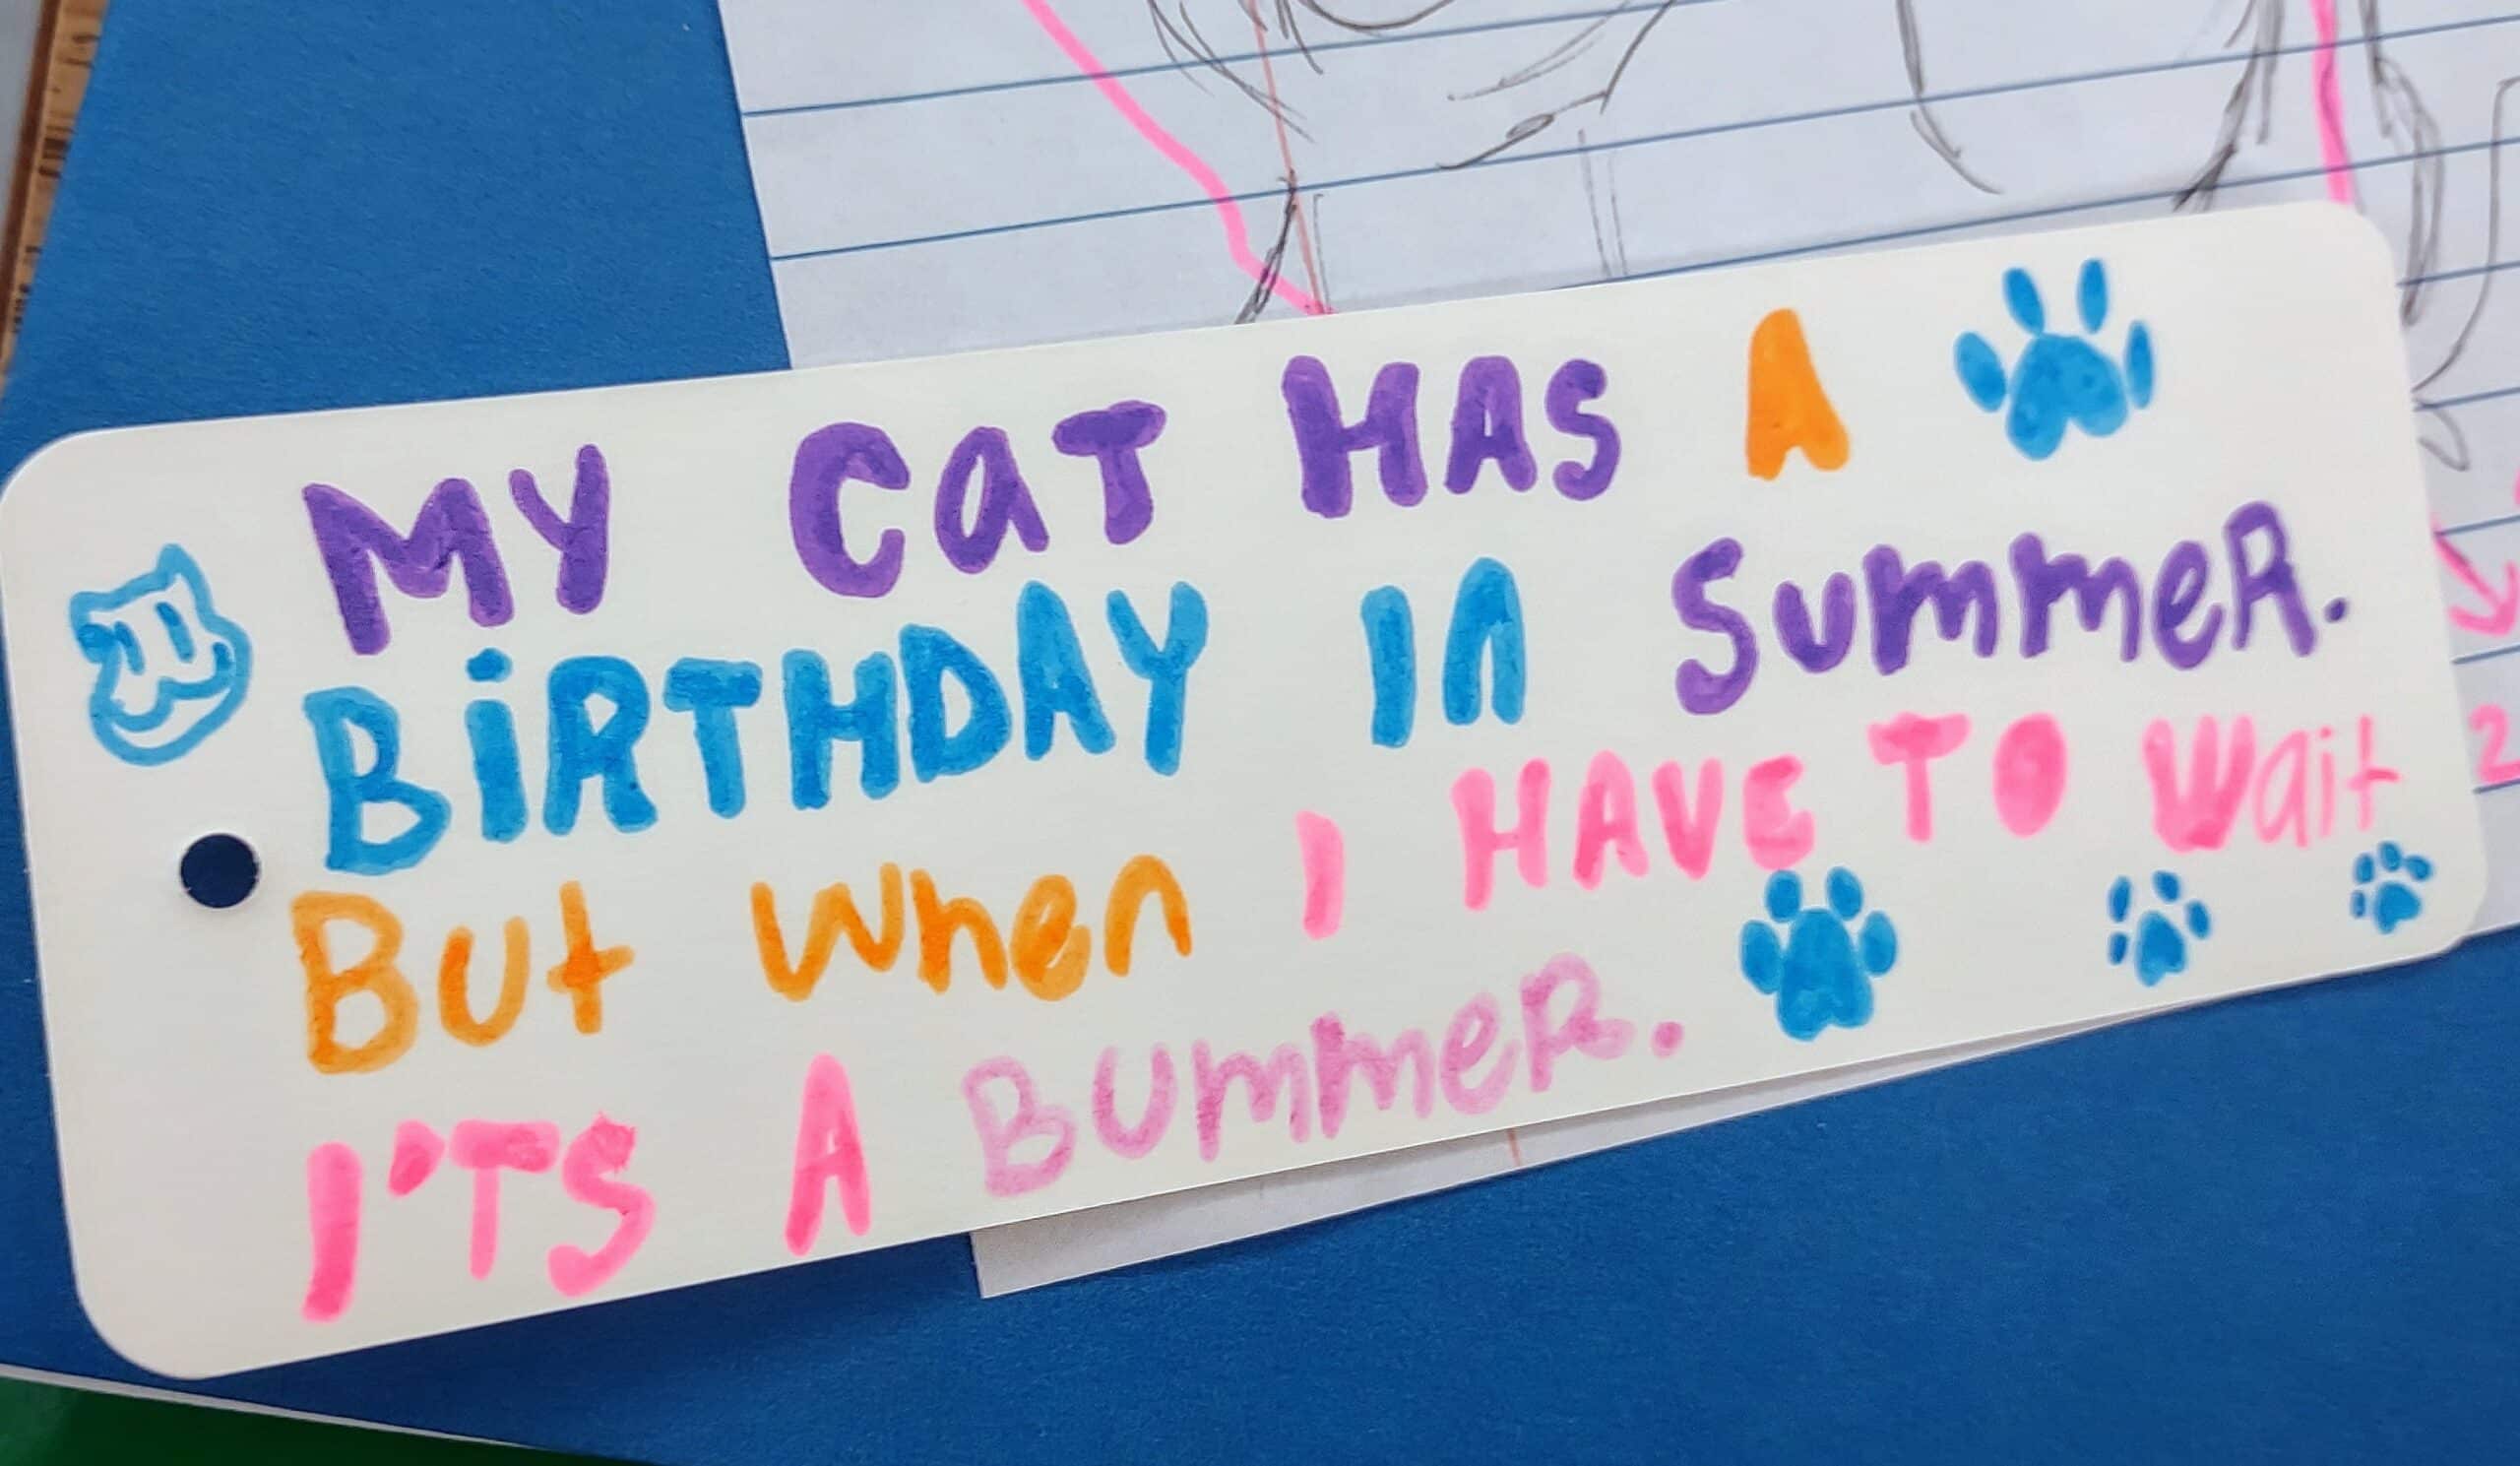 MY CAT HAS A
BiRTHDAY IN SummeR.
But when I HAVE TO Wait
I'TS A BummeR.
2